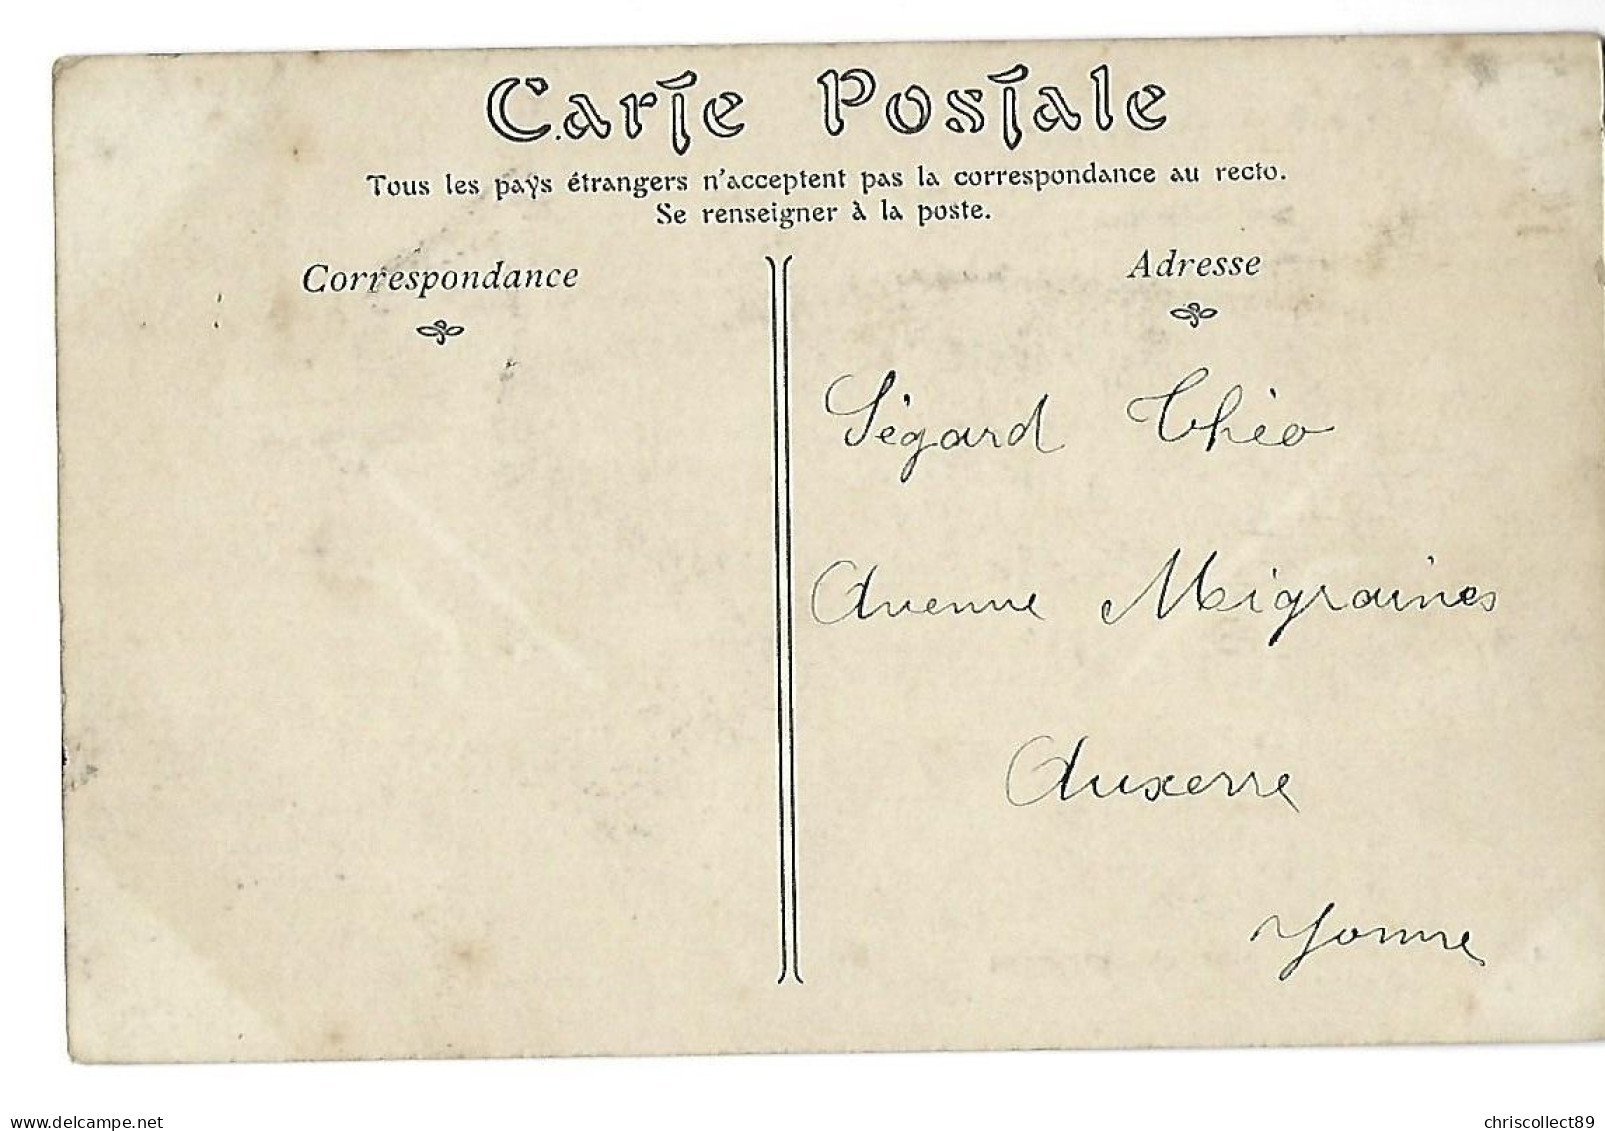 Carte Postale
Tous les pays étrangers n'acceptent pas la correspondance au recto.
Se renseigner à la poste.
Correspondance
Adresse
Ségard Théo
Avenue Migraines
Auxerre
Yonne
delcampe.net
chriscollect89